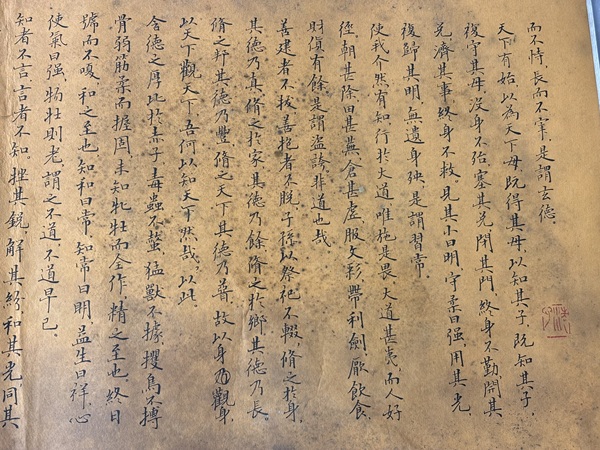 而不恃，長而不宰，是謂玄德。
天下有始，以為天下母。既得其母，以知其子，既知其子，
復守其母，没身不殆。塞其兑，閉其門，終身不勤。開其
兑，濟其事，終身不救。見其小曰明，守柔曰强。用其光，
復歸其明，無遺身殃，是謂習常。
使我介然有知，行於大道，唯施是畏。大道甚夷，而人好
徑。朝甚除，田甚蕪，倉甚虚，服文彩，帶利劍，厭飲食，
財貨有餘，是謂盗誇，非道也哉。
善建者不拔，善抱者不脱，子孫以祭祀不輟。脩之於身，
其德乃真。脩之於家，其德乃餘。脩之於鄉，其德乃長。
脩之其德乃豐。脩之天下，其德乃普。故以身觀身，
以天下觀天下。吾何以知天下然哉，以此。
含德之厚，比於赤子。毒蟲不螫，猛獸不據，攫鳥不搏。
骨弱筋柔而握固。未知牝牡而全作，精之至也。終日
號而不嗄，和之至也。知和曰常，知常曰明。益生曰祥。心
使氣曰强。物壯則老，謂之不道，不道早已。
知者不言，言者不知。挫其鋭，解其紛，和其光，同其